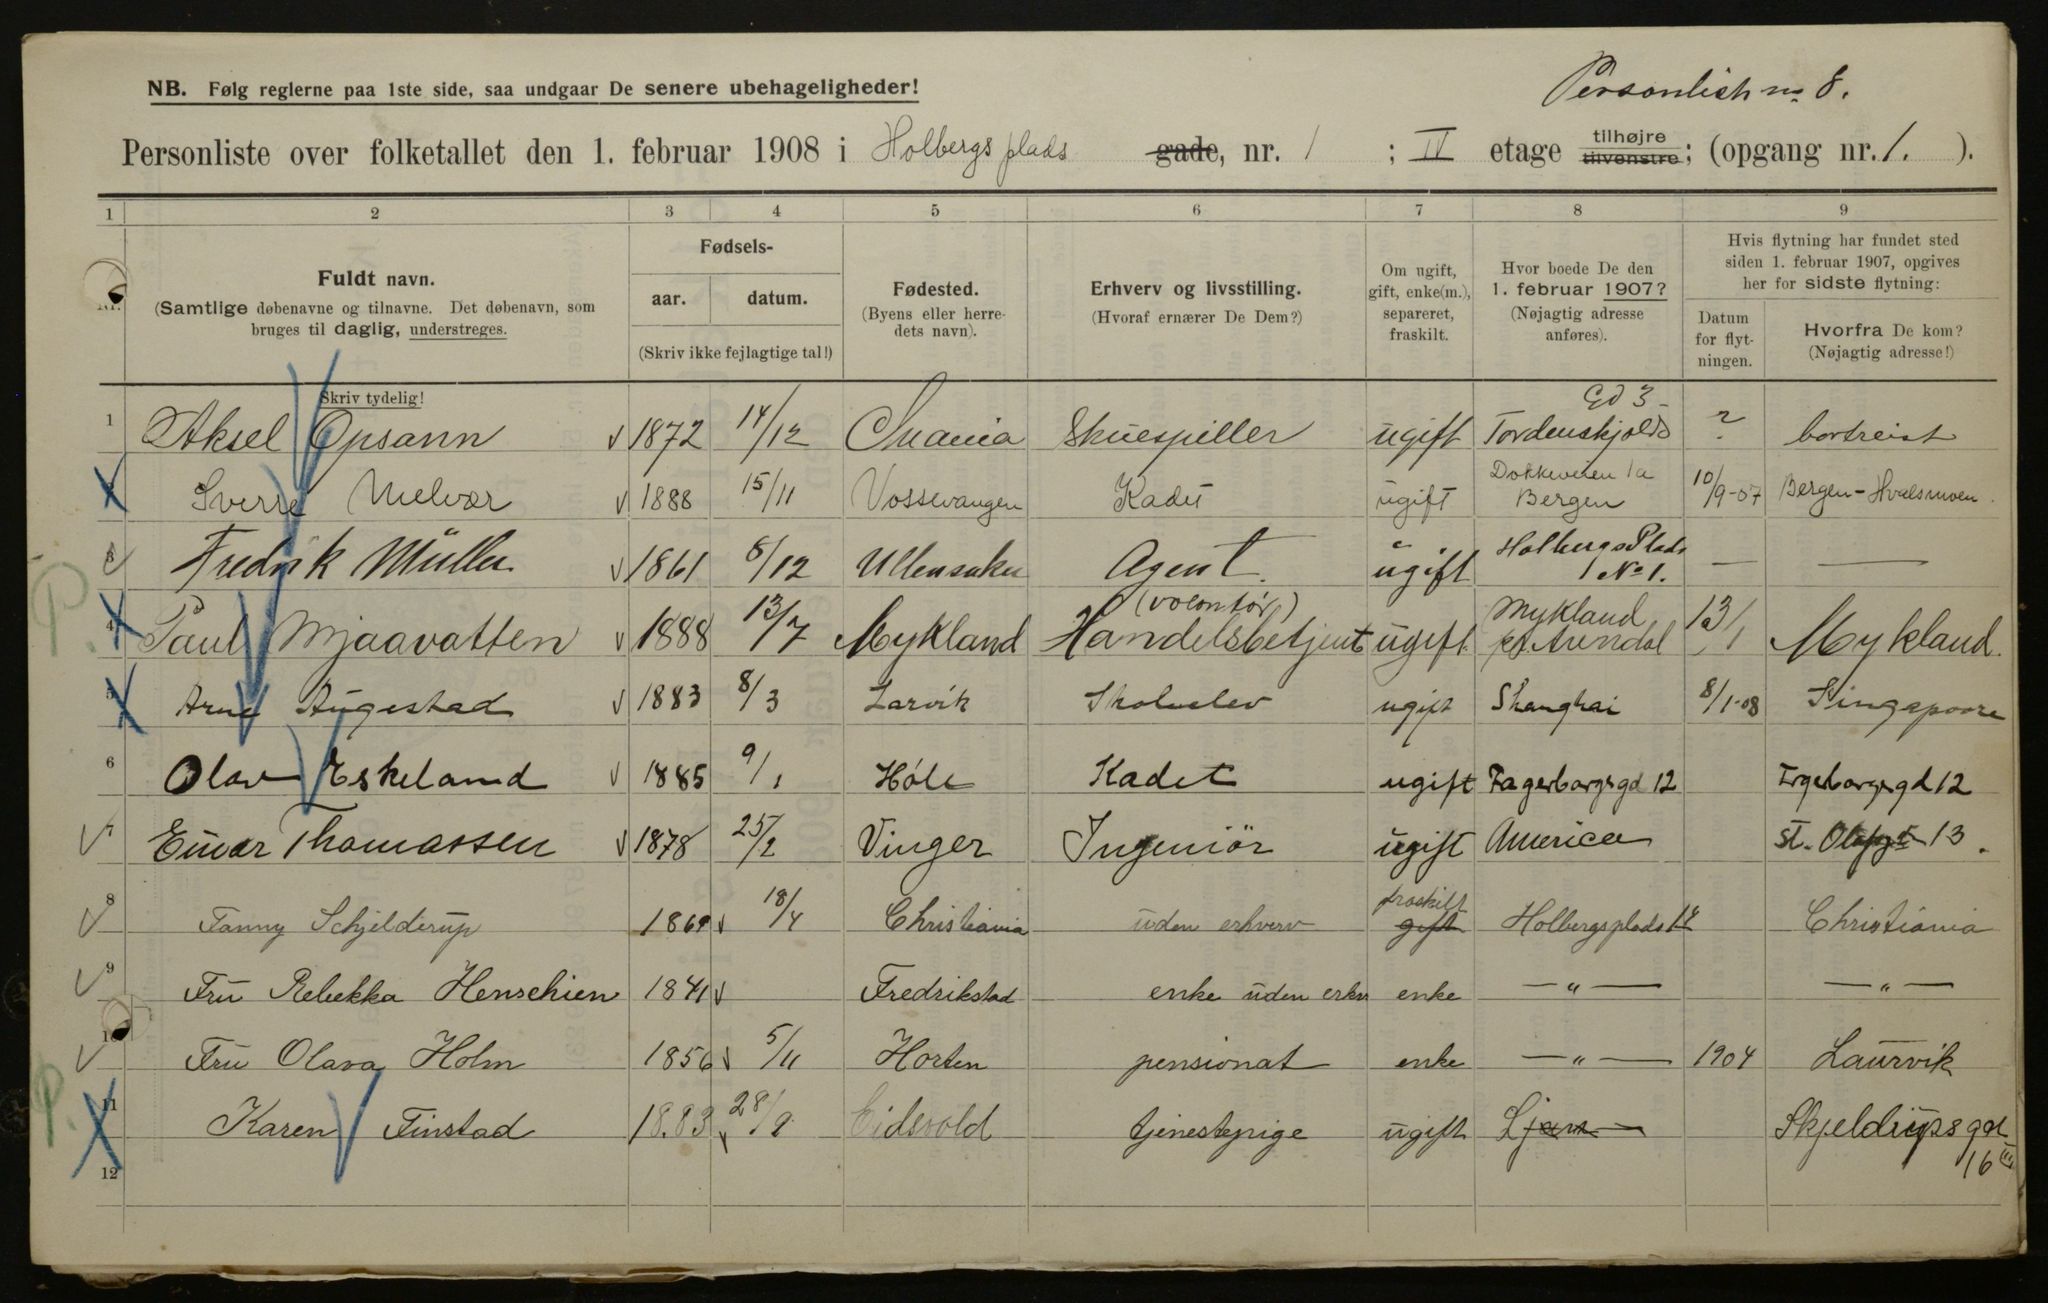 Personlish no 8.
NB. Følg reglerne paa 1ste side, saa undgaar De senere ubehageligheder!
Personliste over folketallet den 1. februar 1908 i Holbergs plads gade, nr. 1 ; IV etage tilhøjre tilvenstre; (opgang nr. 1. ).
1 2 3 4 5 6 7 8 9
Nr.
Fuldt navn.
(Samtlige døbenavne og tilnavne. Det døbenavn, som
bruges til daglig, understreges.
Skriv tydelig!
Fødsels-
aar. datum.
(Skriv ikke fejlagtige tal!)
Fødested.
(Byens eller herre-
dets navn).
Erhverv og livsstilling.
(Hvoraf ernærer De Dem?)
Om ugift,
gift, enke(m.),
separeret,
fraskilt.
Hvor boede De den
1. februar 1907?
(Nøjagtig adresse
anføres).
Hvis flytning har fundet sted
siden 1. februar 1907, opgives
her for sidste flytning:
Datum
for flyt-
ningen.
Hvorfra De kom?
(Nøjagtig adresse!)
1 Aksel Opsann 1872 14/12 Skuespiller ugift Tordenskjolds Gd 3 ? bortreist
Sverre Melvær 1888 15/11 Vossevangen Kadet ugift Dokkeveien 1a Bergen 10/9-07 Bergen-Hvalsmoen.
3 Fredrik Müller 1861 8/12 Ullensaker Agent. ugift Holbergs Plads 1 No 1. — —
4 Paul Mjaavatten 1888 13/7 Mykland Handelsbetjent (volontør) ugift. Mykland pr. Arendal 13/1 Mykland.
5 Arne Augestad 1883 8/3 Larvik Skoleelev ugift Shanghai 8/1-08 Singapoore
6 Olav Eskeland 1885 9/1 Høle Kadet ugift Fagerborgsgd 12 Fagerborgsgd 12
7 Einar Thomassen 1878 25/2 Vinger Ingeniör ugift America St. Olafsgt 13.
8 Fanny Schjelderup 1869 18/4 Christiania uden erhverv fraskilt gift Holbergsplads 1 Christiania
9 Fru Rebekka Henschien 1841 Fredrikstad enke uden erhv enke — " — — " —
10 Fru Olava Holm 1856 5/11 Horten pensionat enke — " — 1904 Laurvik
11 Karen Finstad 1883 28/9 Eidsvold tjenestepige ugift Ljan Skjeldrups gd 16 III
12
P.
P.